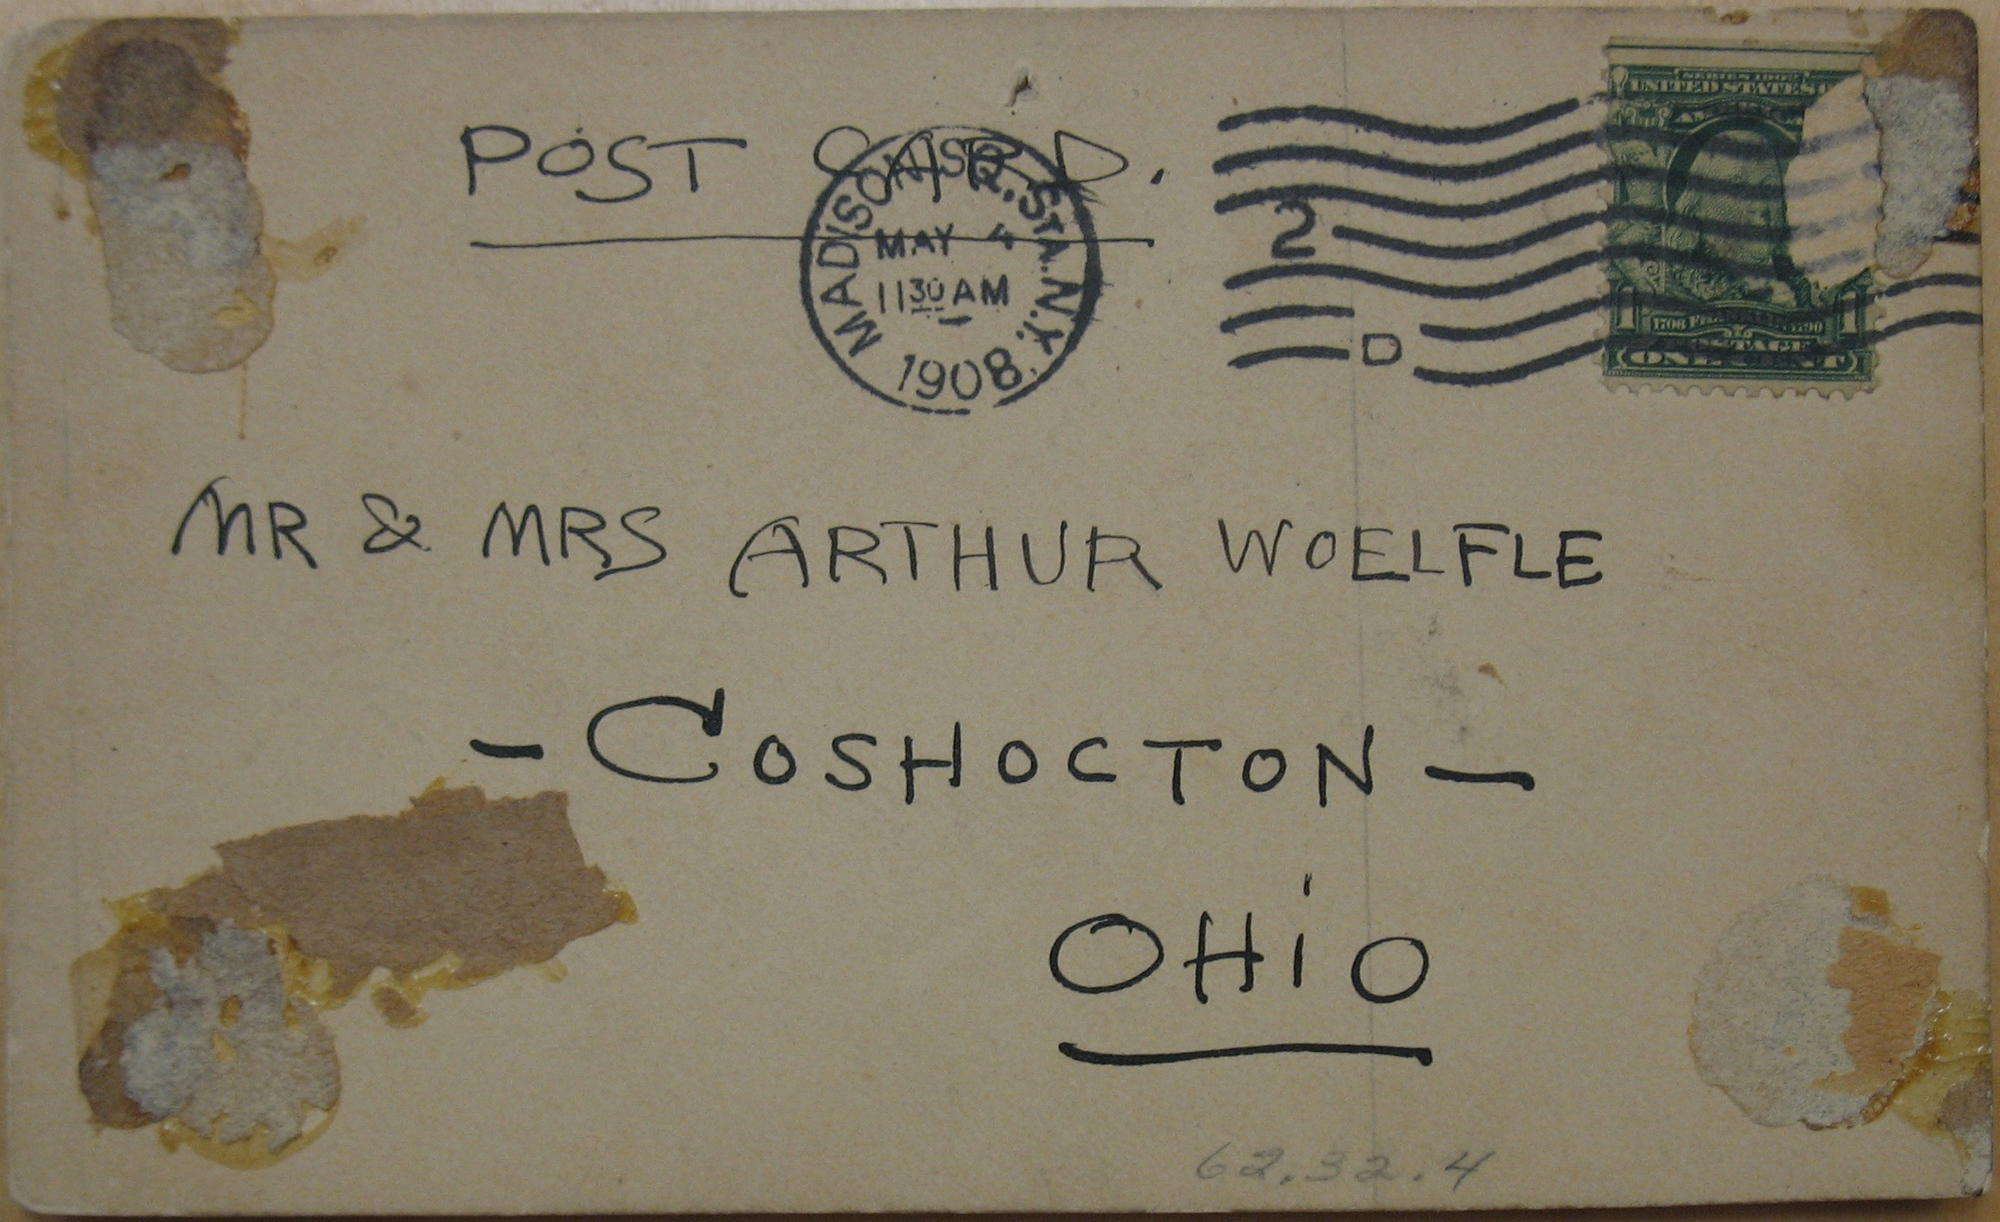 POST CARD.
MADISON SQ. STA. N.Y.
MAY 4
11 30 AM
1908
2
D
SERIES 1902
UNITED STATES
1 1
POSTAGE
ONE CENT
MR & MRS ARTHUR WOELFLE
- COSHOCTON -
OHiO
62.32.4